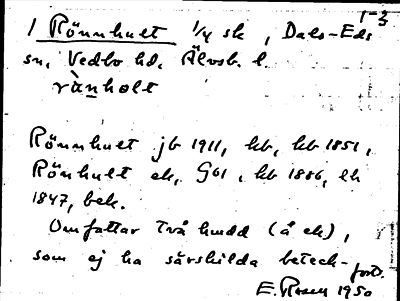 1-3
1 Rönnhult 1/4 sk, Dals-Eds
sn, Vedbo hd, Älvsb. l.
rànholt
Rönnhult jb 1911, kb, hb 1851,
Rönhult ek, G61, hb 1886, lh
1847, bek.
Omfattar två hmdd (å ek),
som ej ha särskilda beteck-
forts.
E. Rosell 1950